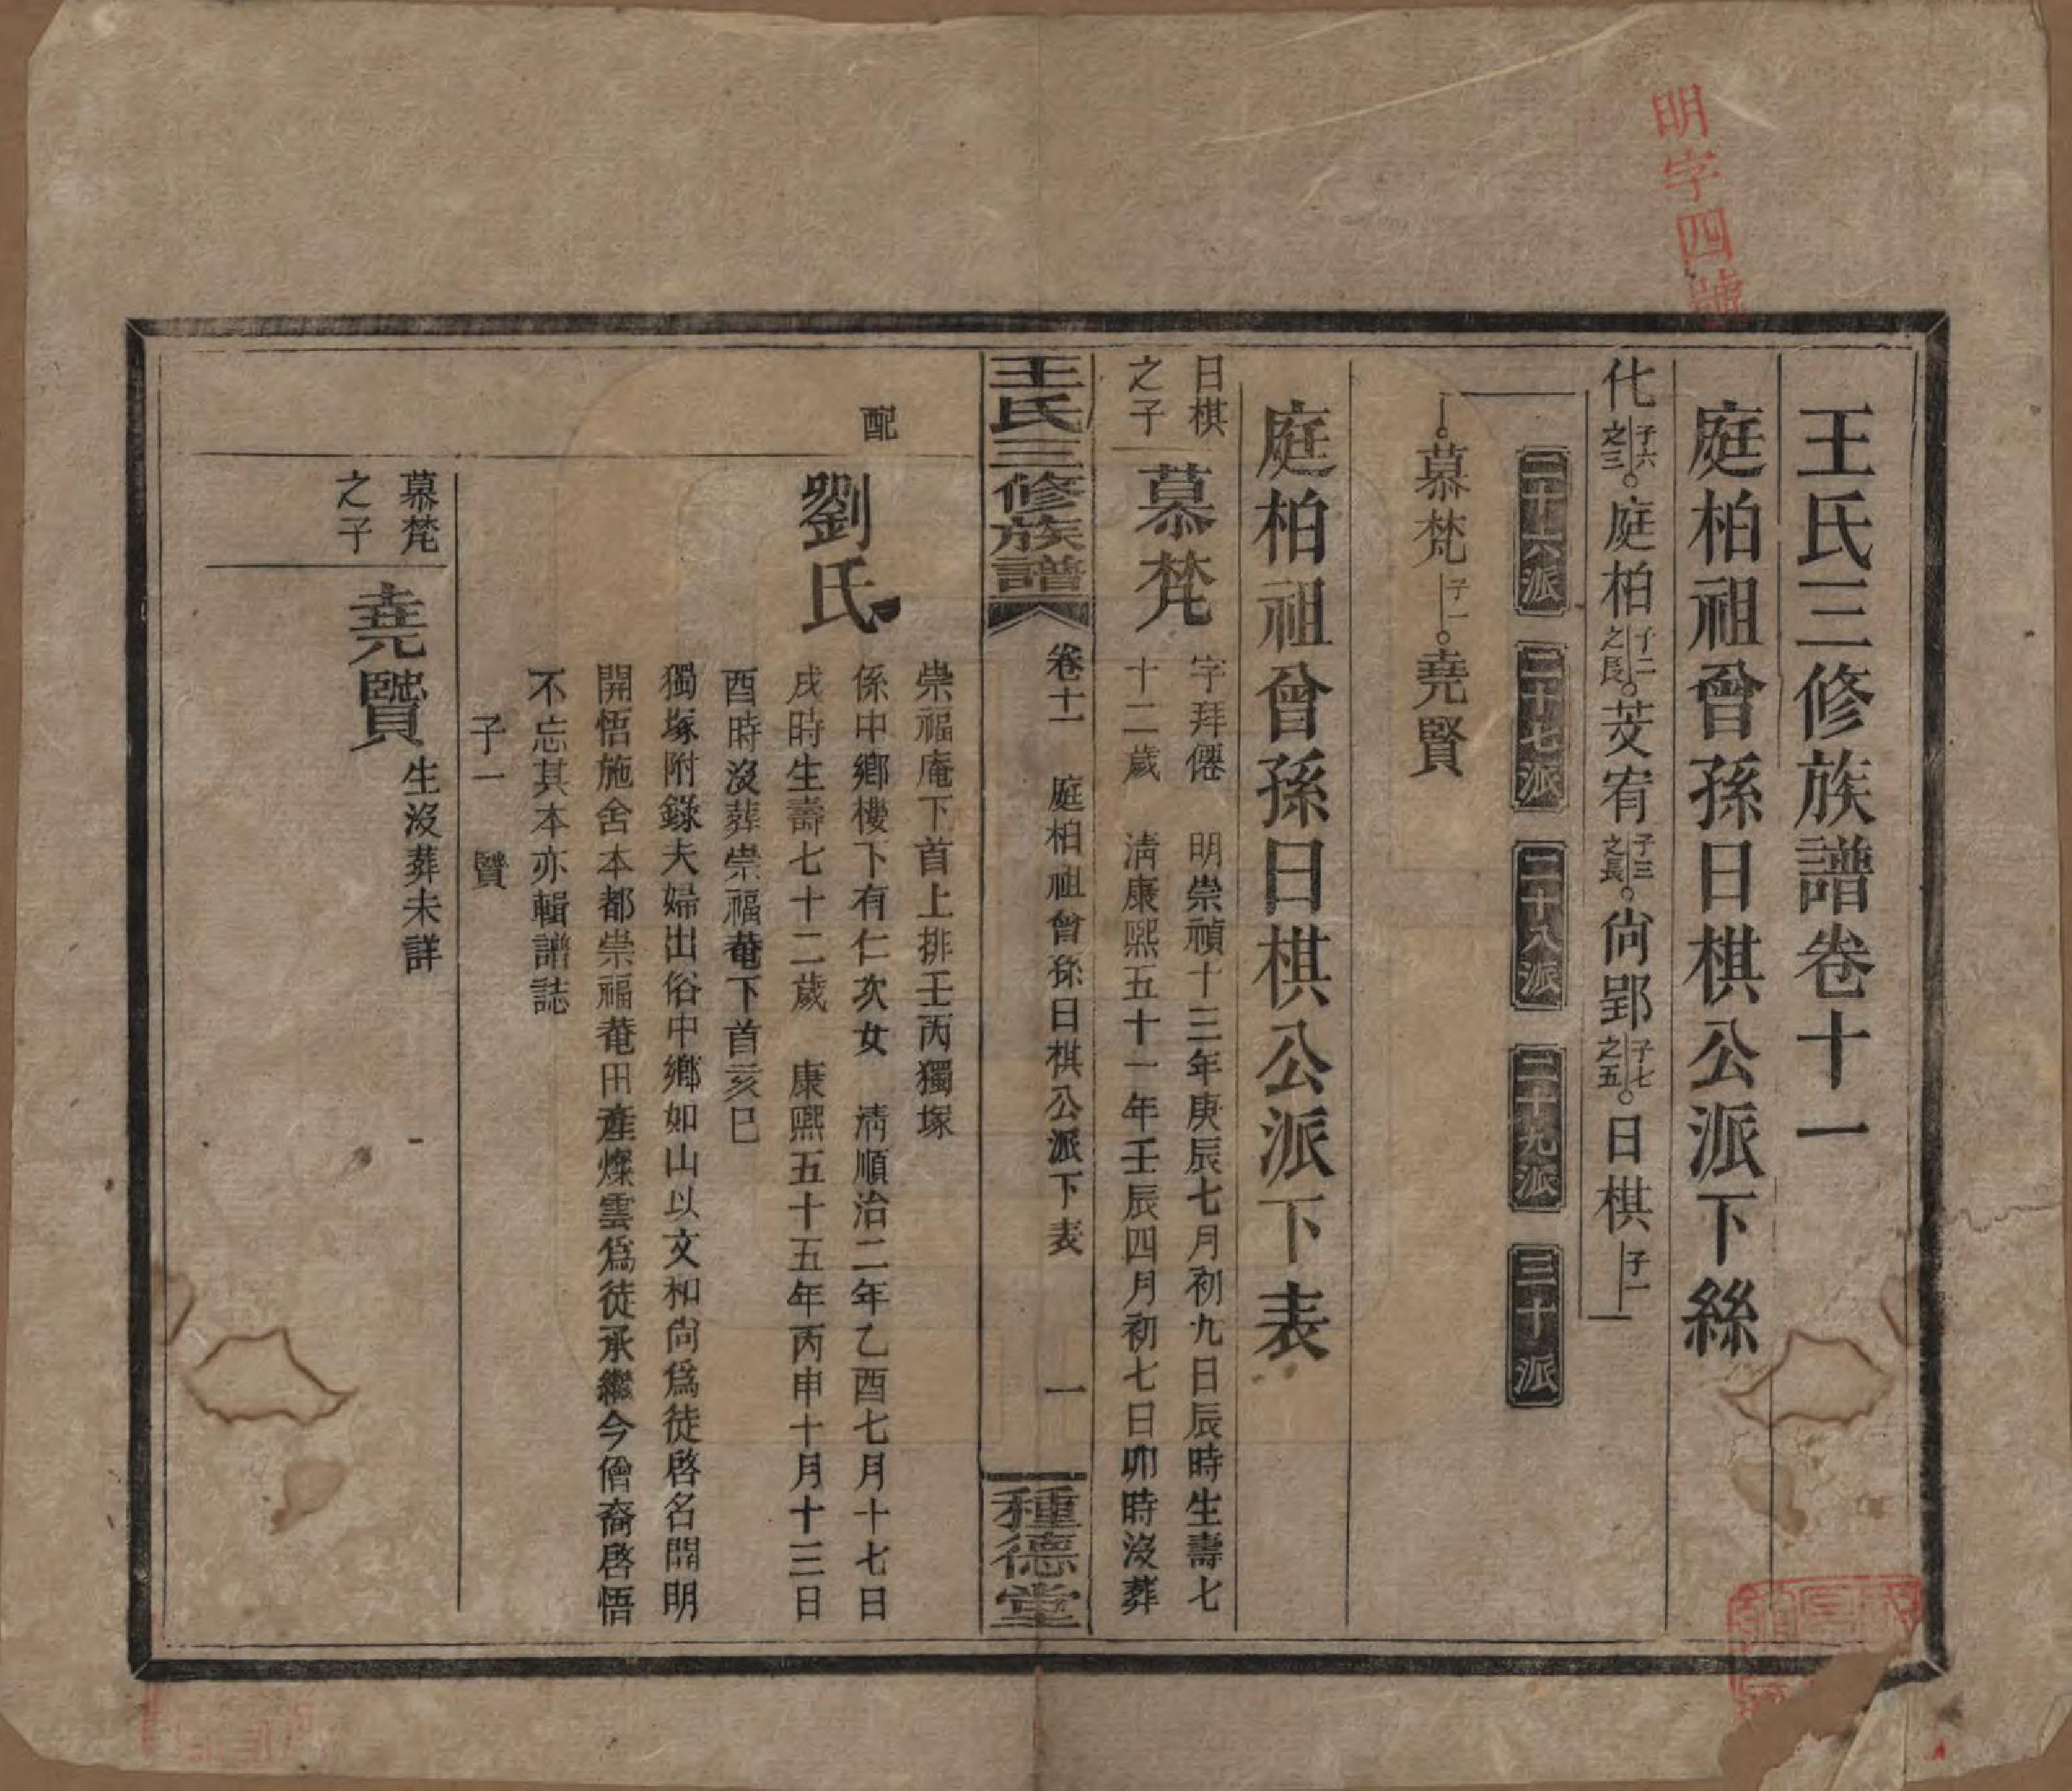 明字四號
王氏三修族譜卷十一
庭柏祖曾孫日棋公派下絲
化 子六之三。庭柏 子二之長。芰宥 子三之長。尙郢 子七之五。日棋 子一
二十六派
二十七派
二十八派
二十九派
三十派
慕梵 子一。堯賢
庭柏祖曾孫日棋公派下表
日棋之子
慕梵
字拜僊 明崇禎十三年庚辰七月初九日辰時生壽七
十二歲 清康熙五十一年壬辰四月初七日卯時沒葬
王氏三修族譜
卷十一 庭柏祖曾孫日棋公派下表 一
種德堂
崇福庵下首上排壬丙獨塚
配
劉氏
係中鄉樓下有仁次女 清順治二年乙酉七月十七日
戌時生壽七十二歲 康熙五十五年丙申十月十三日
酉時沒葬崇福菴下首亥巳
獨塚附錄夫婦出俗中鄉如山以文和尙爲徒啓名開明
開悟施舍本都崇福菴田產燦雲爲徒承繼今僧裔啓悟
不忘其本亦輯譜誌
子一 賢
慕梵之子
堯賢
生沒葬未詳